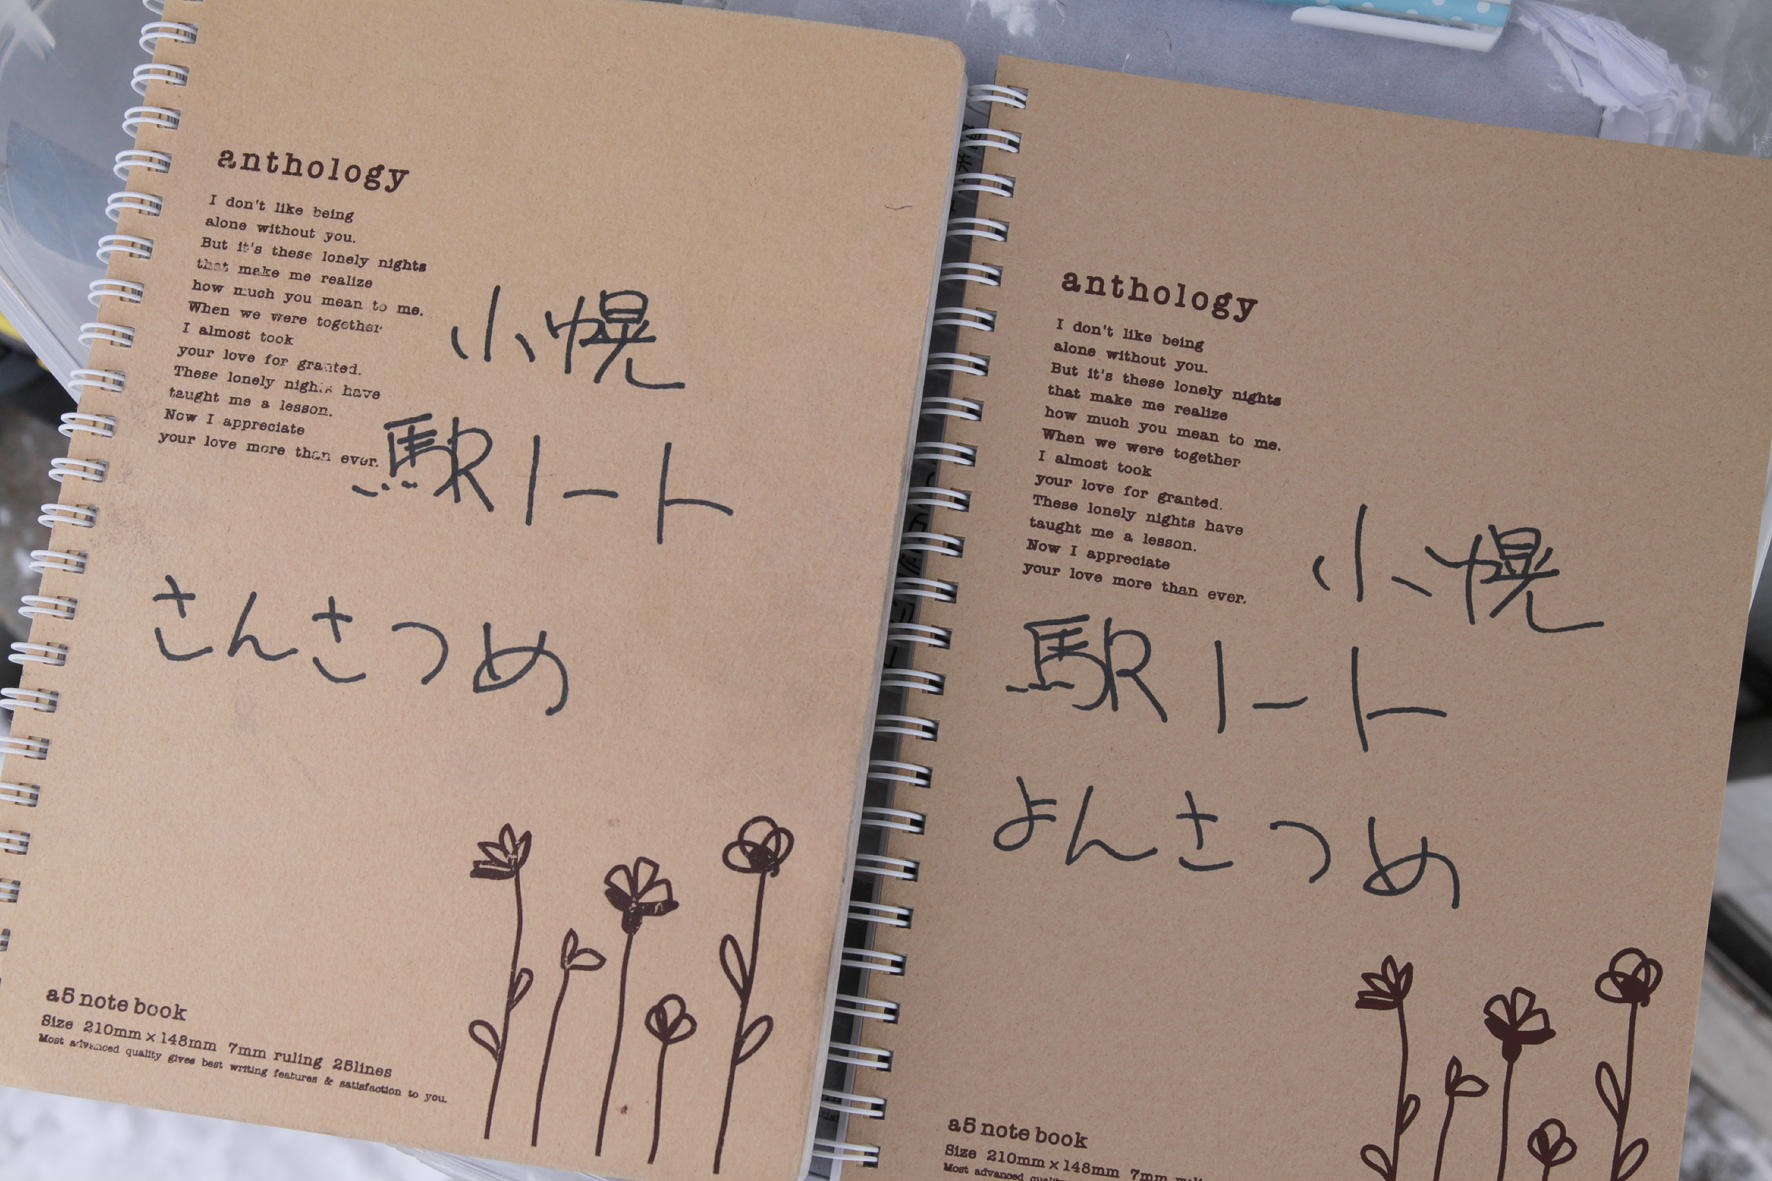 anthology
I don't like being
alone without you.
But it's these lonely nights
that make me realize
how much you mean to me.
When we were together
I almost took
your love for granted.
These lonely nights have
taught me a lesson.
Now I appreciate
your love more than ever.
小幌
駅ノート
さんさつめ
a5 note book
Size 210mm×148mm 7mm ruling 25lines
Most advanced quality gives best writing features & satisfaction to you.
anthology
I don't like being
alone without you.
But it's these lonely nights
that make me realize
how much you mean to me.
When we were together
I almost took
your love for granted.
These lonely nights have
taught me a lesson.
Now I appreciate
your love more than ever.
小幌
駅ノート
よんさつめ
a5 note book
Size 210mm×148mm 7mm
Most advanced